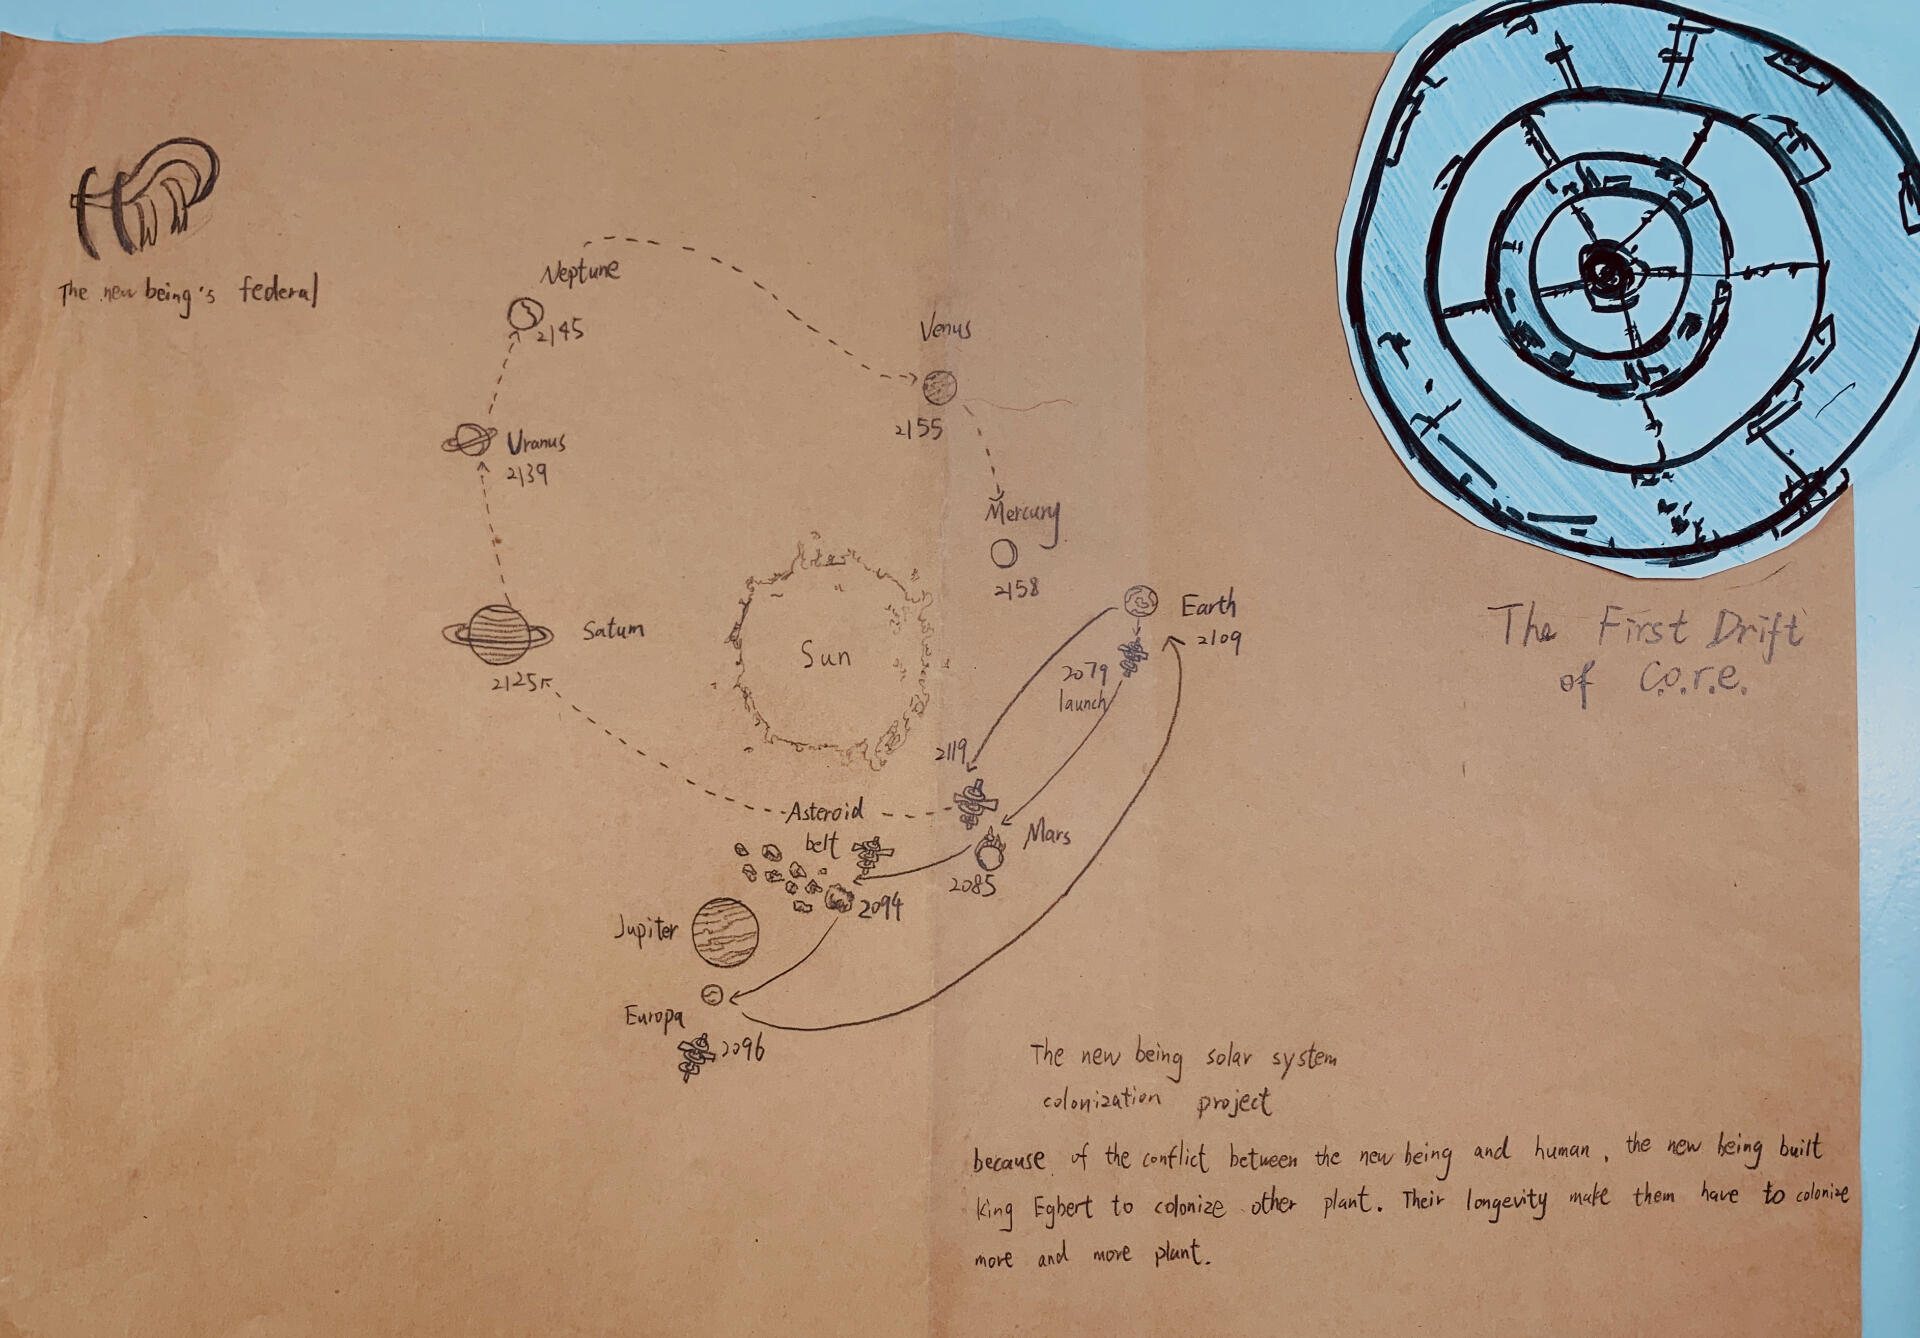 The new being's federal
Neptune
2145
Venus
2155
Uranus
2139
Mercury
2158
Earth
2109
Saturn
2125
Sun
2079
launch
The First Drift
of C.o.r.e.
2119
Asteroid
belt
Mars
2085
2094
Jupiter
Europa
2096
The new being solar system
colonization project
because of the conflict between the new being and human, the new being built
king Egbert to colonize other plant. Their longevity make them have to colonize
more and more plant.